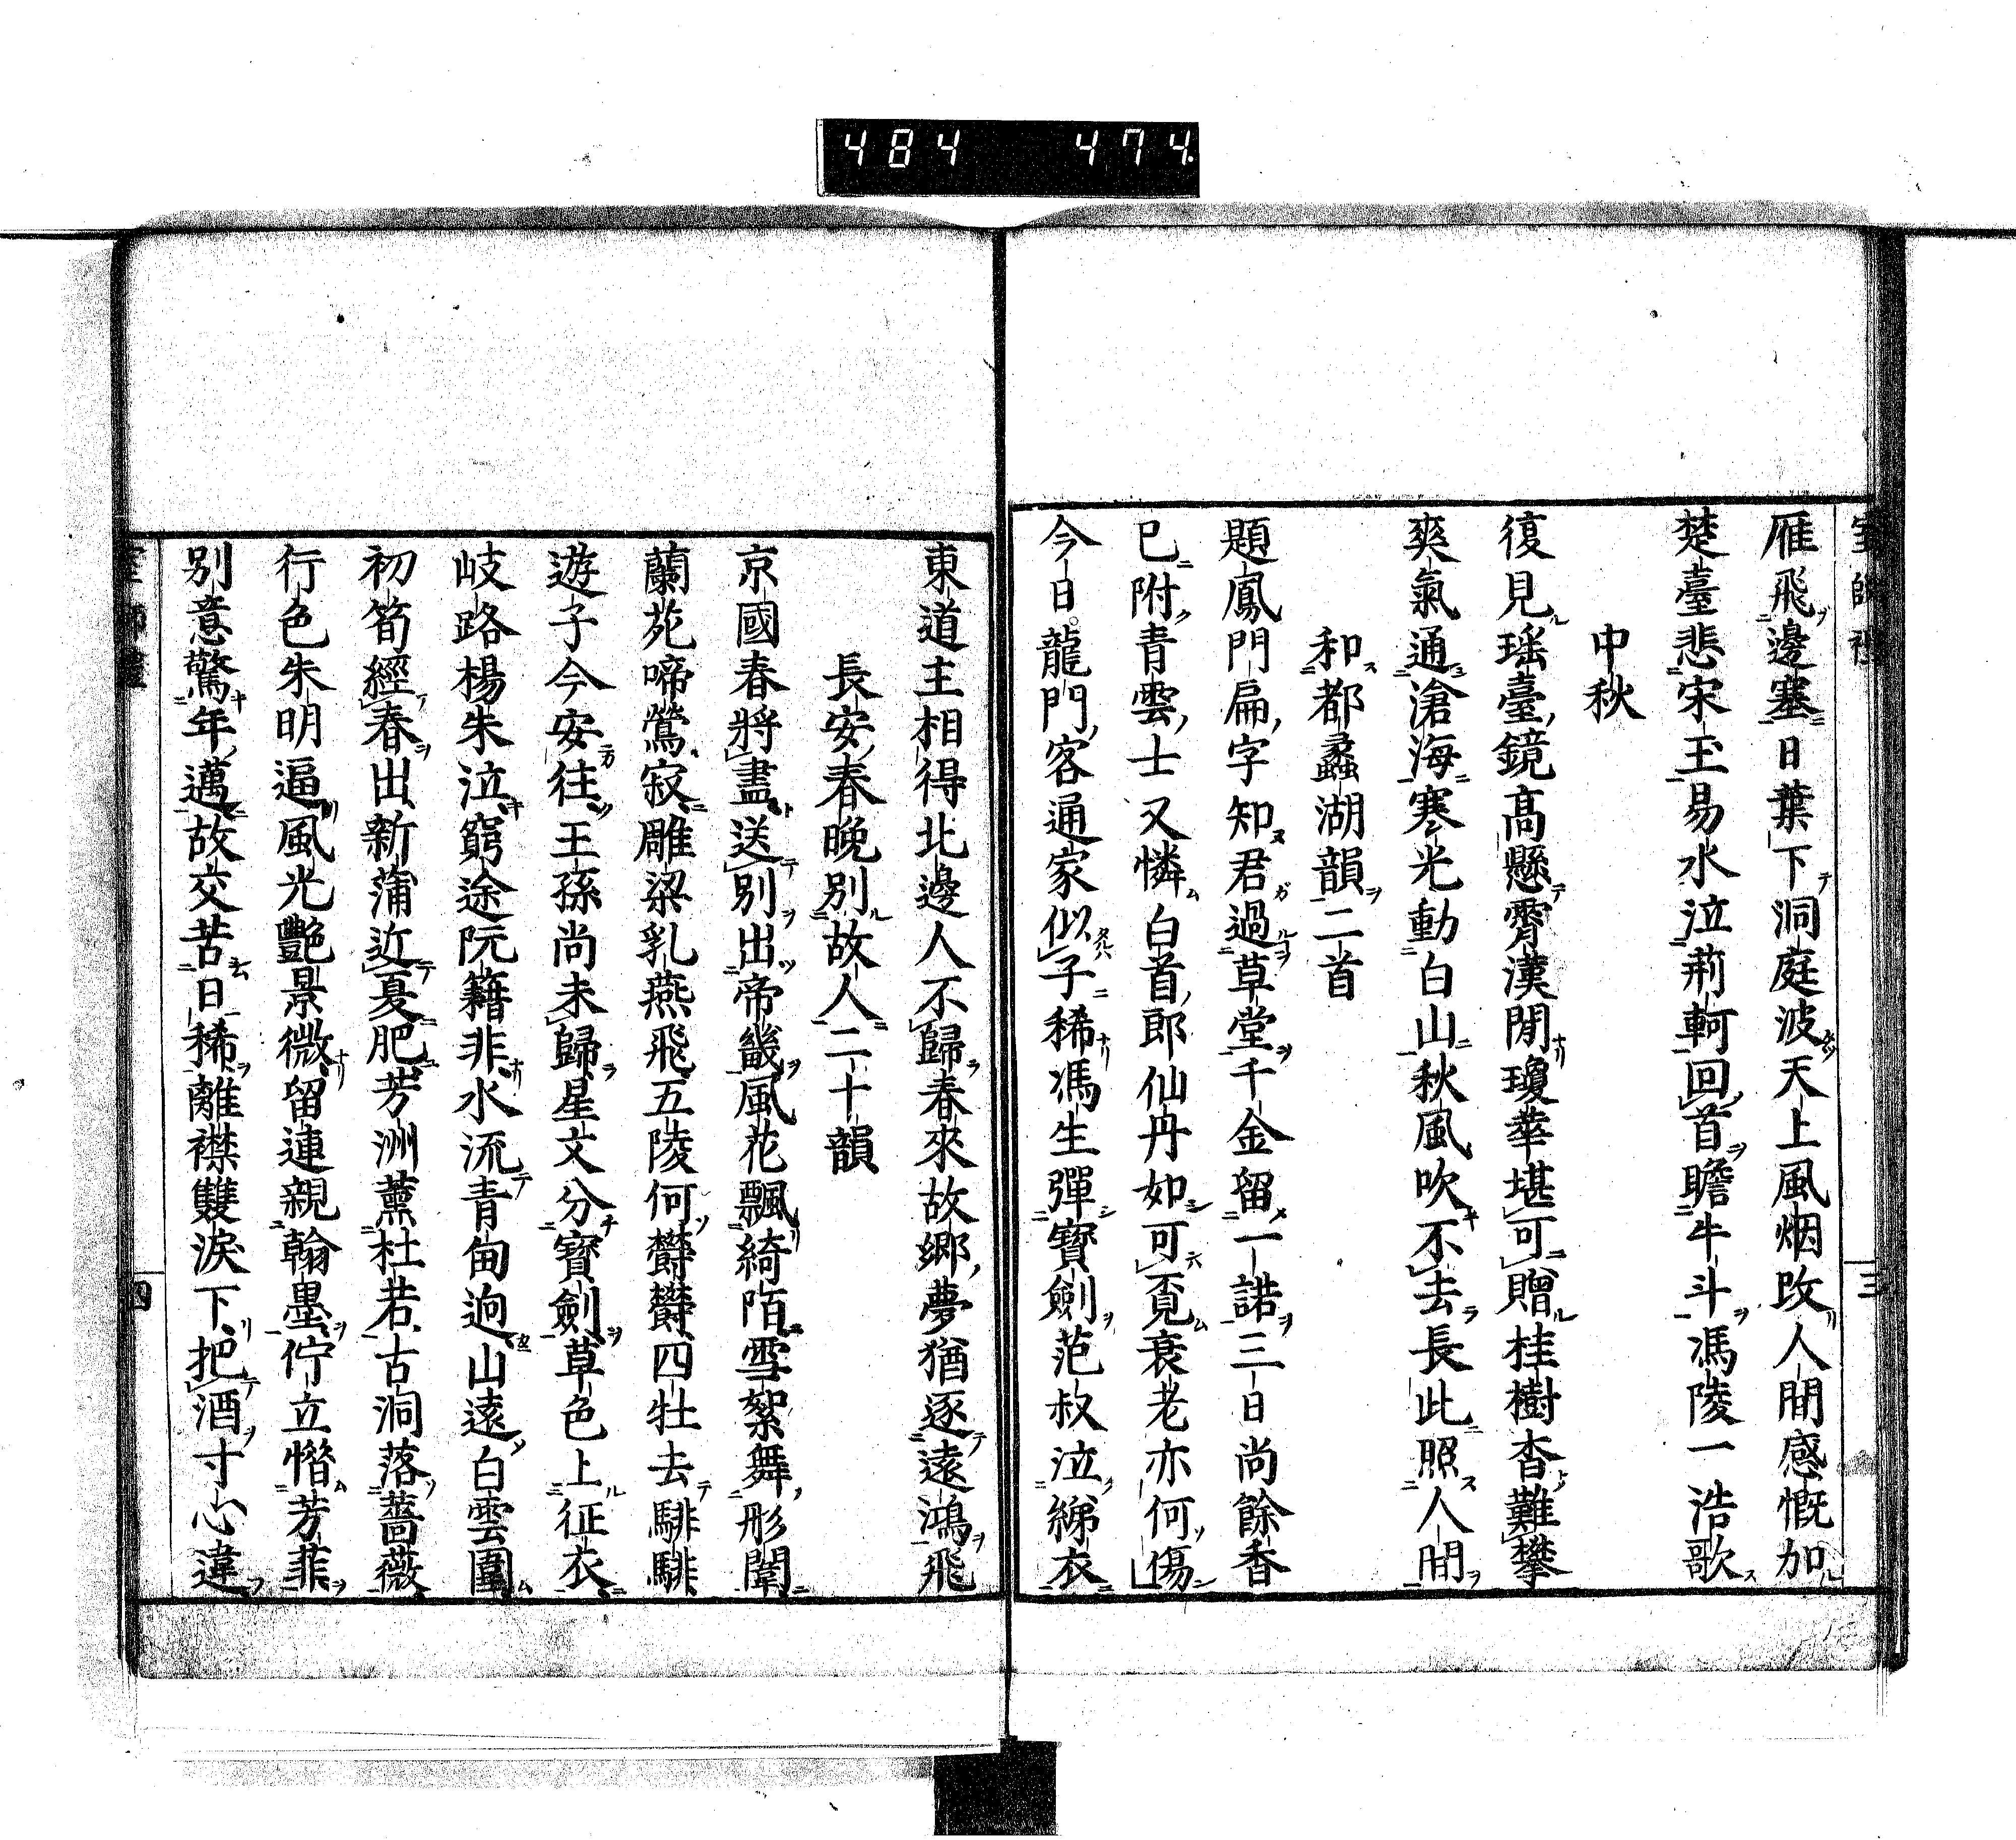 484 474
雁飛邊塞日葉下洞庭波天上風烟改人間感慨加
楚臺悲宋玉易水泣荊軻回首瞻牛斗馮陵一浩歌
中秋
復見瑶臺鏡高懸霄漢間瓊華堪可贈桂樹杳難攀
爽氣通滄海寒光動白山秋風吹不去長此照人間
和都蠡湖韻二首
題鳳門扁字知君過草堂千金留一諾三日尚餘香
已附青雲士又憐白首郎仙丹如可覓衰老亦何傷
今日龍門客通家似子稀馮生彈寶劍范叔泣綈衣
三
東道主相得北邊人不歸春來故鄉夢猶逐遠鴻飛
長安春晚別故人二十韻
京國春將盡送別出帝畿風花飄綺陌雪絮舞彤闈
蘭苑啼鶯寂雕梁乳燕飛五陵何欝欝四牡去騑騑
遊子今安往王孫尚未歸星文分寶劍草色上征衣
岐路楊朱泣窮途阮籍非水流青甸逈山遠白雲圍
初筍經春出新蒲近夏肥芳洲薫杜若古洞落薔薇
行色朱明逼風光艷景微留連親翰墨佇立惜芳菲
別意驚年邁故交苦日稀離襟雙淚下把酒寸心違
四